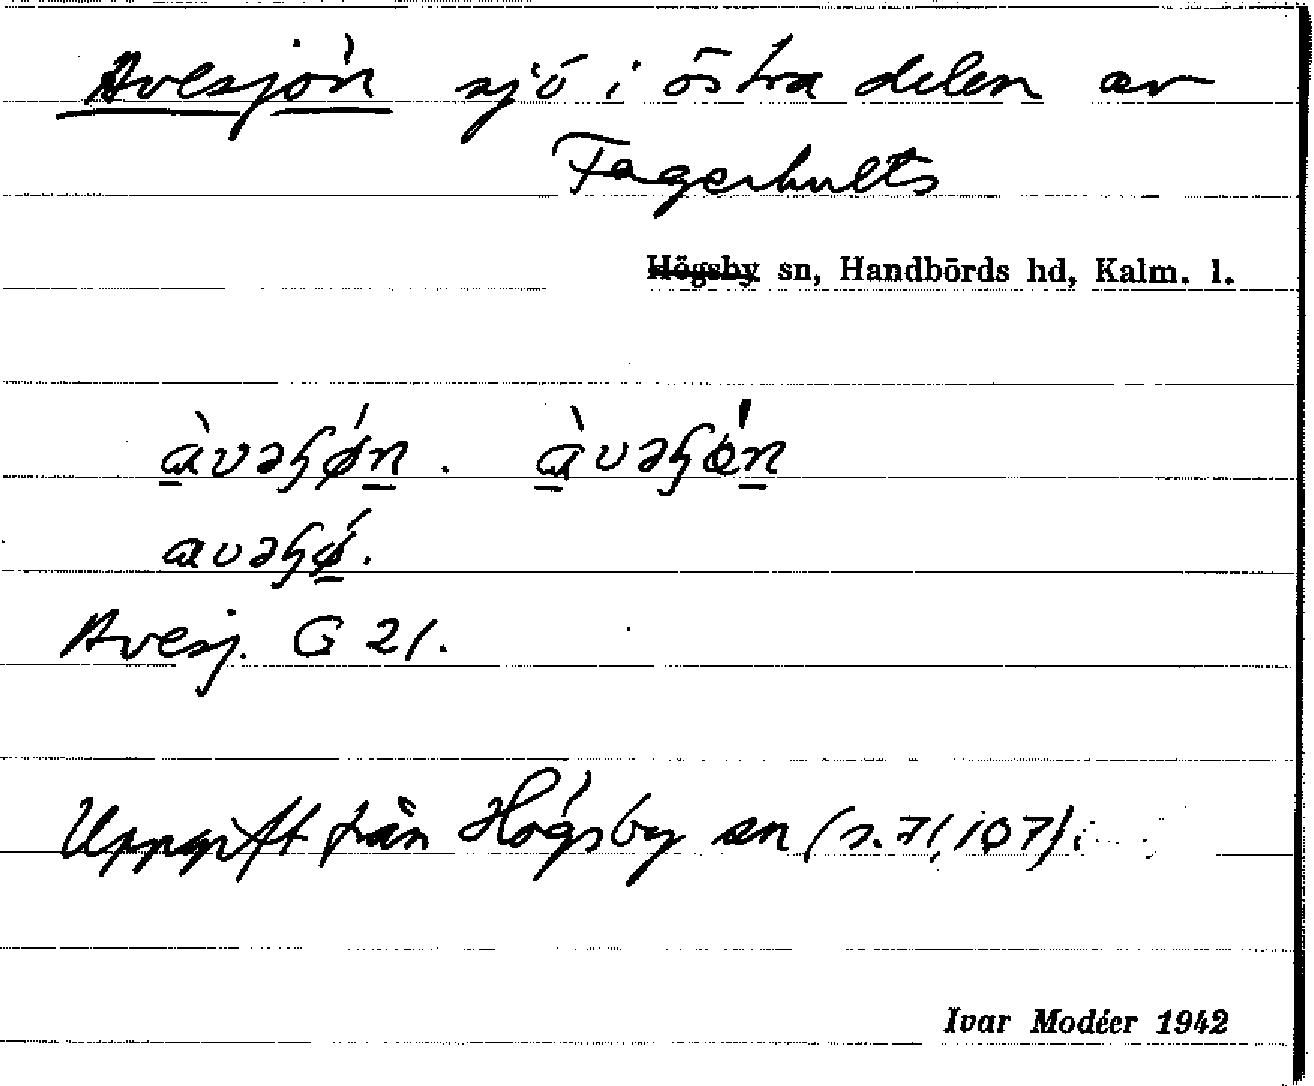 Avesjön sjö i östra delen av
Fagerhults
Högsby sn, Handbörds hd, Kalm. l.
àvəɧǿn. àvəɧǿn
avəɧǿ.
Avesj. G 21.
Uppgift från Högsby sn (s. 71, 107).
Ivar Modéer 1942